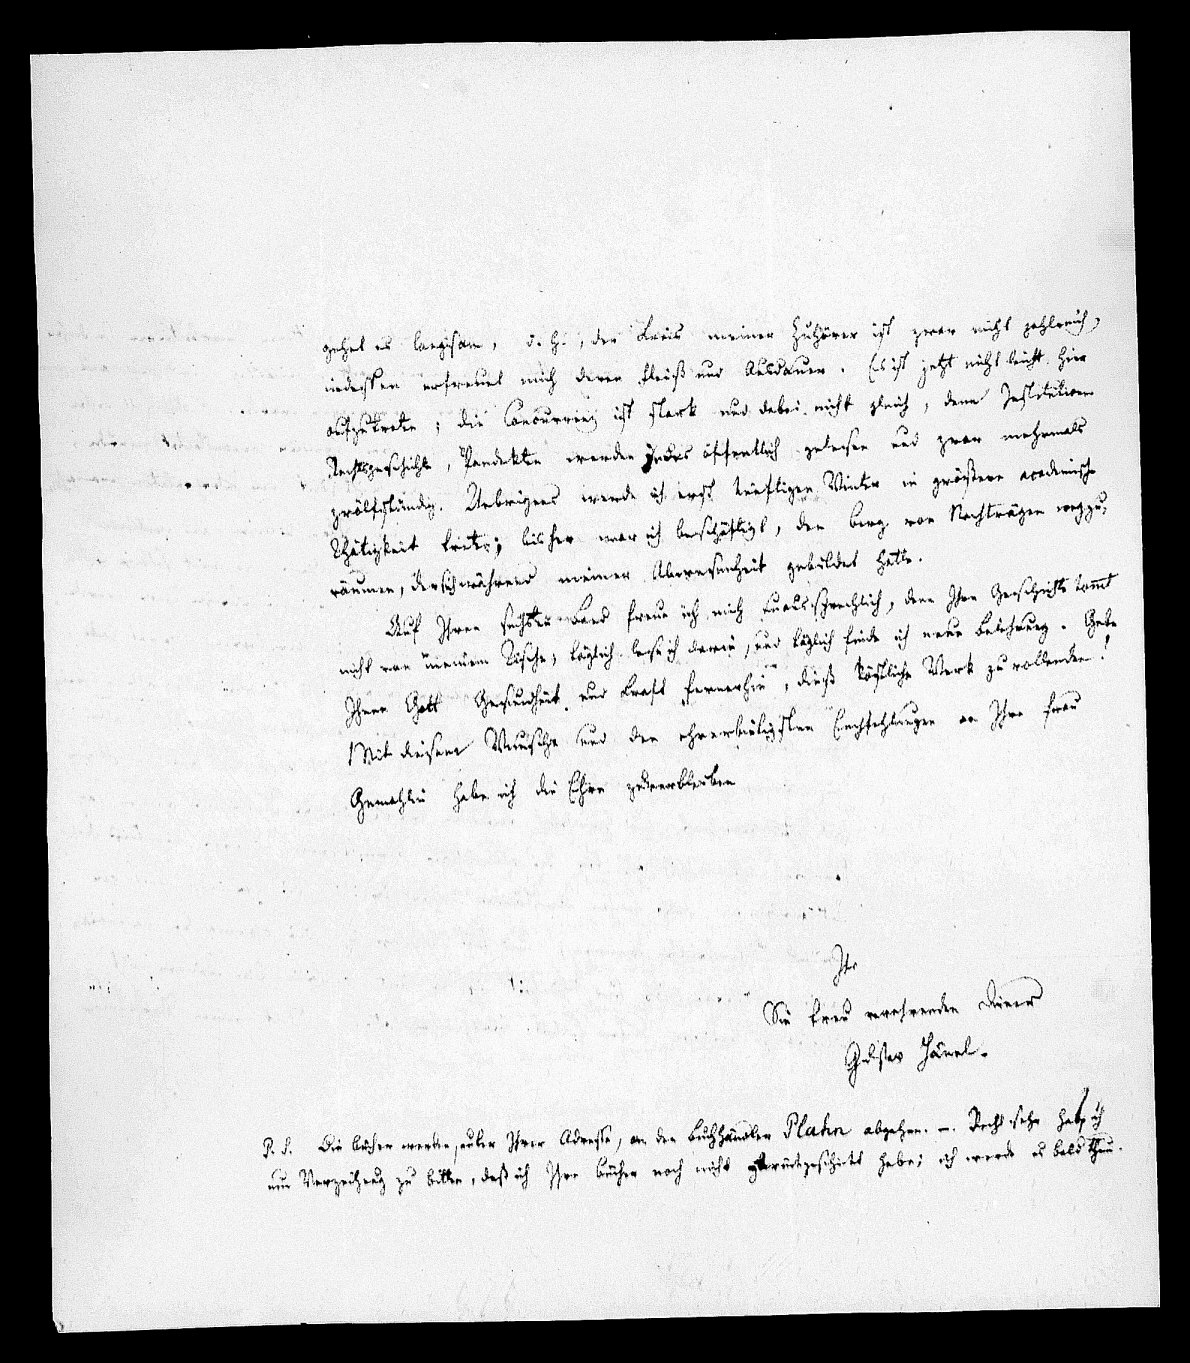 gehet es langsam, d. h., der Kreis meiner Zuhörer ist zwar nicht zahlreich,
indessen erfreuet mich deren Fleiß und Ausdauer. Es ist jetzt nicht leicht hier
aufzutreten; die Concurrenz ist stark und dabei nicht gleich, denn Institutionen
Rechtsgeschichte, Pandekten werden öffentlich gelesen und zwar mehrmals
zwölfstündig. Uebrigens werde ich erst künftigen Winter in größere academische
Thätigkeit treten; bisher war ich beschäftigt, den Berg von Nachträgen wegzu-
räumen, der sich während meiner Abwesenheit gebildet hatte.
Auf Ihren sechsten Band freue ich mich unaussprechlich, denn Ihre Geschichte kommt
nicht von meinem Tische, täglich lese ich darin, und täglich finde ich neue Belehrung. Gebe
Ihnen Gott Gesundheit und Kraft fernerhin, dieß köstliche Werk zu vollenden!
Mit diesem Wunsche und den ehrerbietigsten Empfehlungen an Ihre Frau
Gemahlin habe ich die Ehre zu verbleiben
Ihr
Sie treu verehrender Diener
Gustav Hänel.
P. S. Die Bücher werden, unter Ihrer Adresse, an den Buchhändler Plahn abgehen. – Recht sehr habe ich
um Verzeihung zu bitten, daß ich Ihre Bücher noch nicht zurückgeschickt habe; ich werde es bald thun.